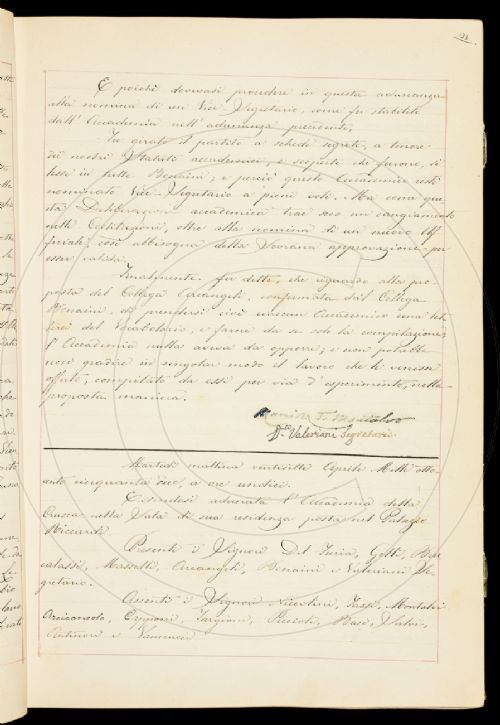 E poichè dovevasi procedere in questa adunanza
alla nomina di un Vice-Segretario, come fu stabilito
dall'Accademia nell'adunanza precedente,
fu girato il partito a schede segrete, a tenore
dei nostri Statuti accademici, e scoperti che furono, si
lesse in tutte Bonaini; e perciò questo Accademico restò
nominato Vice-Segretario a pieni voti. Ma come que-
sta Deliberazione accademica trae seco un cangiamento
nelle Costituzioni, oltre alla nomina di un nuovo Uf-
fiziale; così abbisogna della Sovrana approvazione per
esser valida.
Finalmente fu detto, che riguardo alla pro-
posta del Collega Arcangeli, confermata dal Collega
Bonaini, di prendersi cioè ciascun Accademico una let-
tera del Vocabolario, e farne da se solo la compilazione,
l'Accademia nulla aveva da opporre; e non potrebbe
non gradire in singolar modo il lavoro che le venisse
offerto, compilato da essi per via d'esperimento, nella
proposta maniera.
Montalvo
D.co Valeriani Segretario.
Martedì mattina ventisette Aprile Mille otto-
cento cinquanta due, a ore undici.
Essendosi adunata l'Accademia della
Crusca nella Sala di sua residenza posta nel Palazzo
Riccardi
Presenti i Signori Del Furia, Gotti, Bu-
calossi, Masselli, Arcangeli, Bonaini e Valeriani Se-
gretario.
Assenti i Signori Niccolini, Tassi, Montalvi
Arciconsolo, Capponi, Targioni, Puccoti, Basi, Salvi,
Antinori e